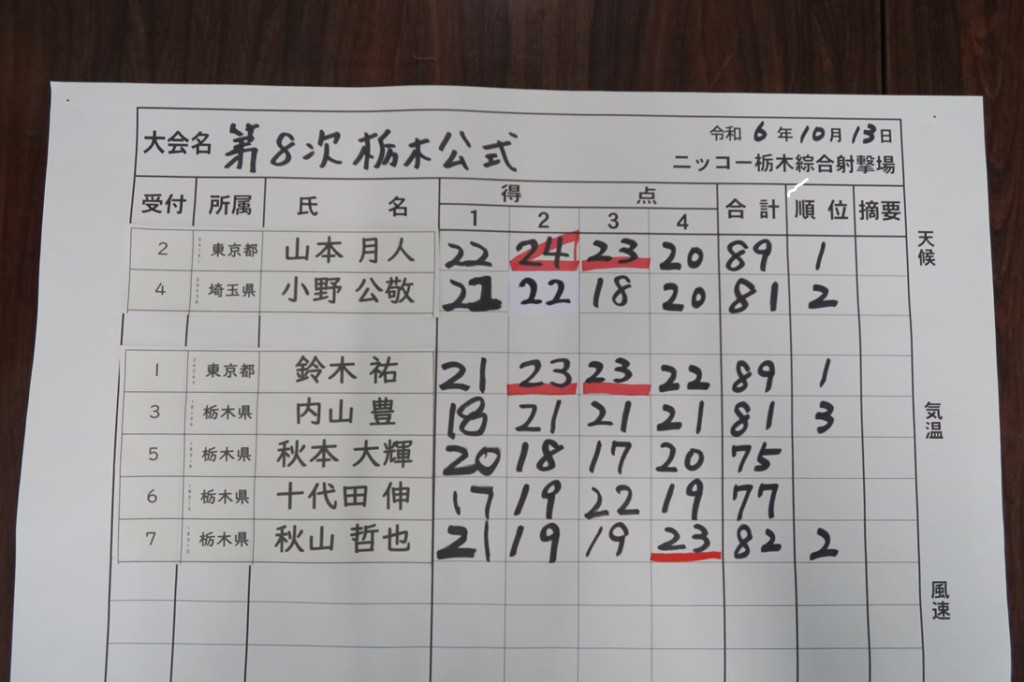 大会名 第8次栃木公式 令和 6 年 10 月 13 日
ニッコー栃木綜合射撃場
受付 所属 氏 名 得 点 合 計 順 位 摘要
1 2 3 4
2 東京都 山本 月人 22 24 23 20 89 1
4 埼玉県 小野 公敬 21 22 18 20 81 2
1 東京都 鈴木 祐 21 23 23 22 89 1
3 栃木県 内山 豊 18 21 21 21 81 3
5 栃木県 秋本 大輝 20 18 17 20 75
6 栃木県 十代田 伸 17 19 22 19 77
7 栃木県 秋山 哲也 21 19 19 23 82 2
天候
気温
風速